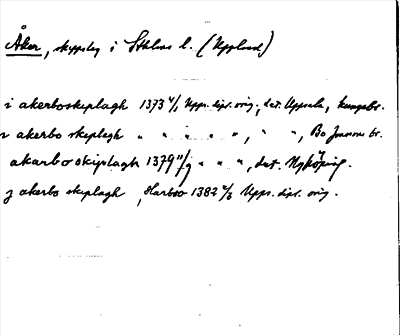 Åker, skeppslag i Sthlms l. (Uppland)
i akerboskeplagh 1373 4/1 Upps. dipl. orig., dat. Uppsala, kungabr.
akerbo skeplagh " " " " ", " ", Bo Jonssons br.
akarbo skiplagh 1379 11/9 " " ", dat. Nyköping.
j akerbo skeplagh, Harbro 1382 Upps. dipl. orig.